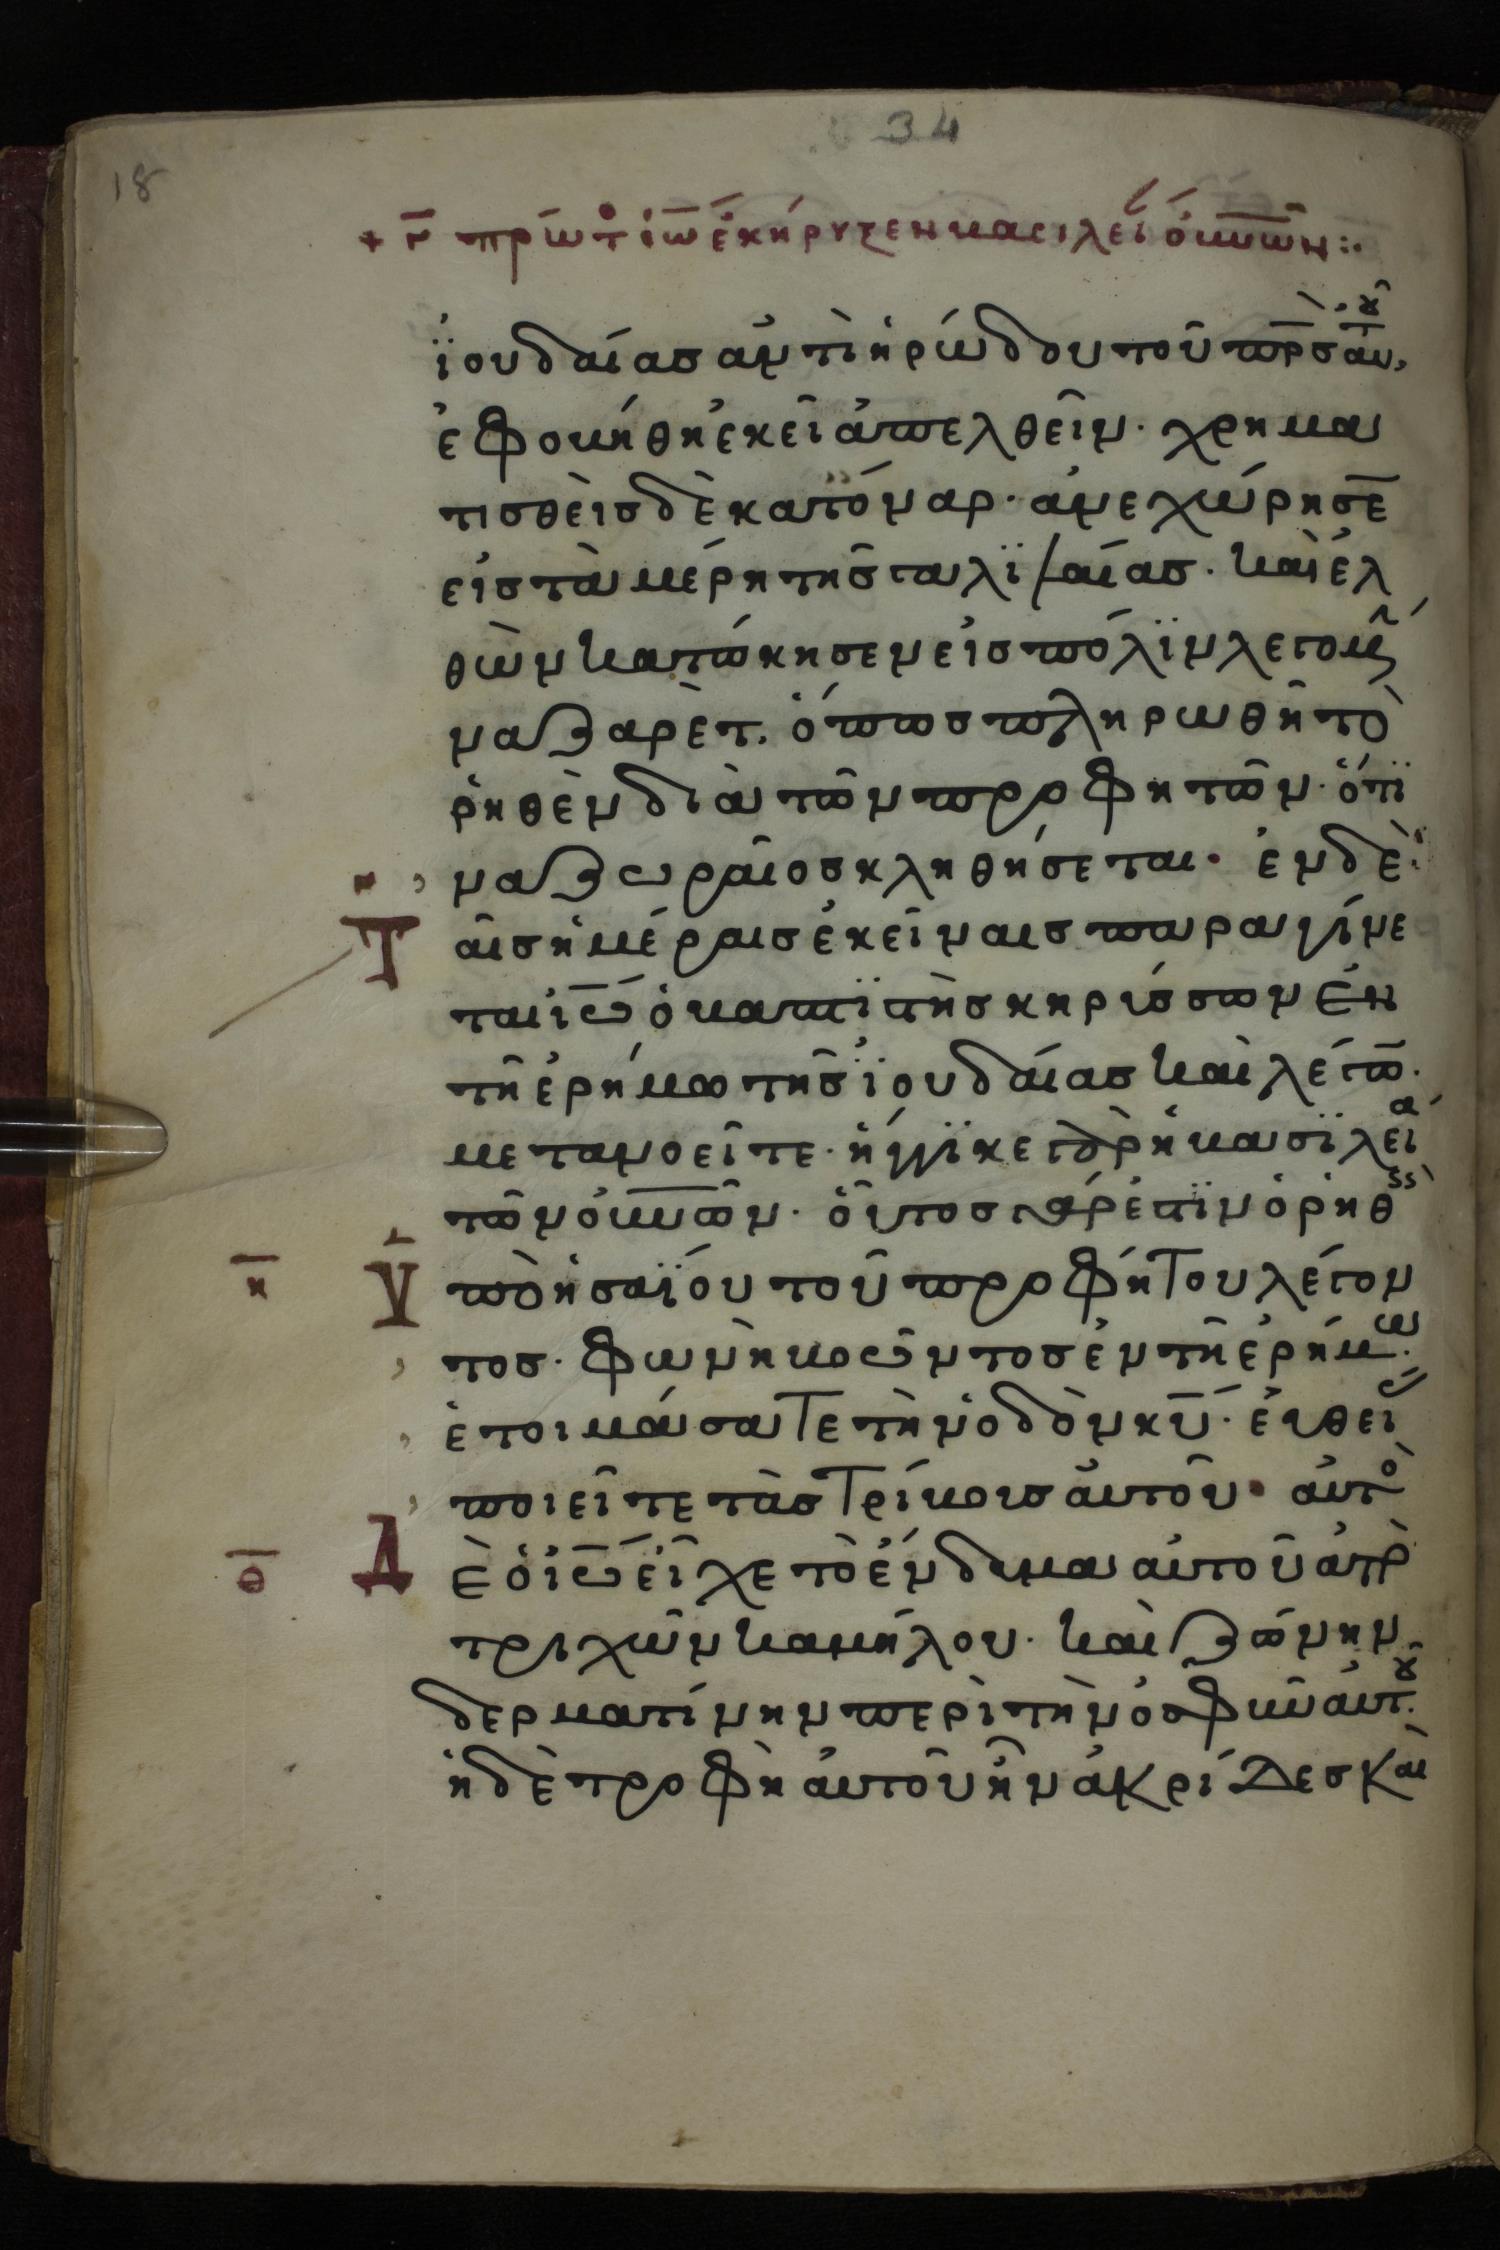 34
18
+ γ̅ πρώτ ἰω̅ ἐκήρυξεν βασιλεί ὀυνῶν :·
ϊουδαίας ἀντὶ ἡρώδου τοῦ πρ̅ς ἀυτοῦ,
ἐφοβήθη ἐκεῖ ἀπελθεῖν· χρημα
τισθεὶς δὲ κατόναρ· ἀνεχώρησε̅
εἰς τὰ μέρη τῆς γαλϊλαίας· καὶ ἐλ
θὼν κατώκησεν εἰς πόλϊν λεγομ
ναζαρὲτ. ὅπως πληρωθῆ τὸ
ῥηθὲν διὰ τῶν προφητῶν· ὅτϊ
ναζωραῖος κληθήσεται· ἐν δὲ
Τ αῖς ἡμέραις ἐκείναις παραγίνε
ται ἰω̅ ὁ βαπτϊστὴς κηρύσσων ἐν
τῆ ἐρήμω τῆς ϊουδαίας καὶ λέγω̅.
μετανοεῖτε· ἤγγϊκε γὰρ ἡ βασϊλεία
τῶν ὀυνῶν· οὗτος γάρ ἐστϊν ὁ ῥηθεὶς
η̅ Ὑ πὸ ἡσαΐου τοῦ προφήτου λέγον
τος· φωνὴ βοῶντος ἐν τῆ ἐρήμω·
ἑτοιμάσατε τὴν ὁδὸν κυ̅· ἐυθεί
ποιεῖτε τὰς τρίβους ἀυτοῦ· ἀυτὸ
θ̅ Δ ὲ ὁ ἰω̅ εἶχε τὸ ἔνδυμα ἀυτοῦ ἀπὸ
τριχῶν καμήλου· καὶ ζώνην
δερματίνην περὶ τὴν ὀσφὺν ἀυτοῦ.
ἡ δὲ τροφὴ ἀυτοῦ ἦν ἀκρίδες καὶ